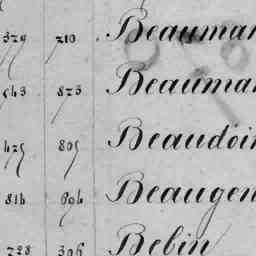 379 210 Beauman
543 823 Beauma
425 805 Beaudoi
814 694 Beaugen
728 306 Bebin